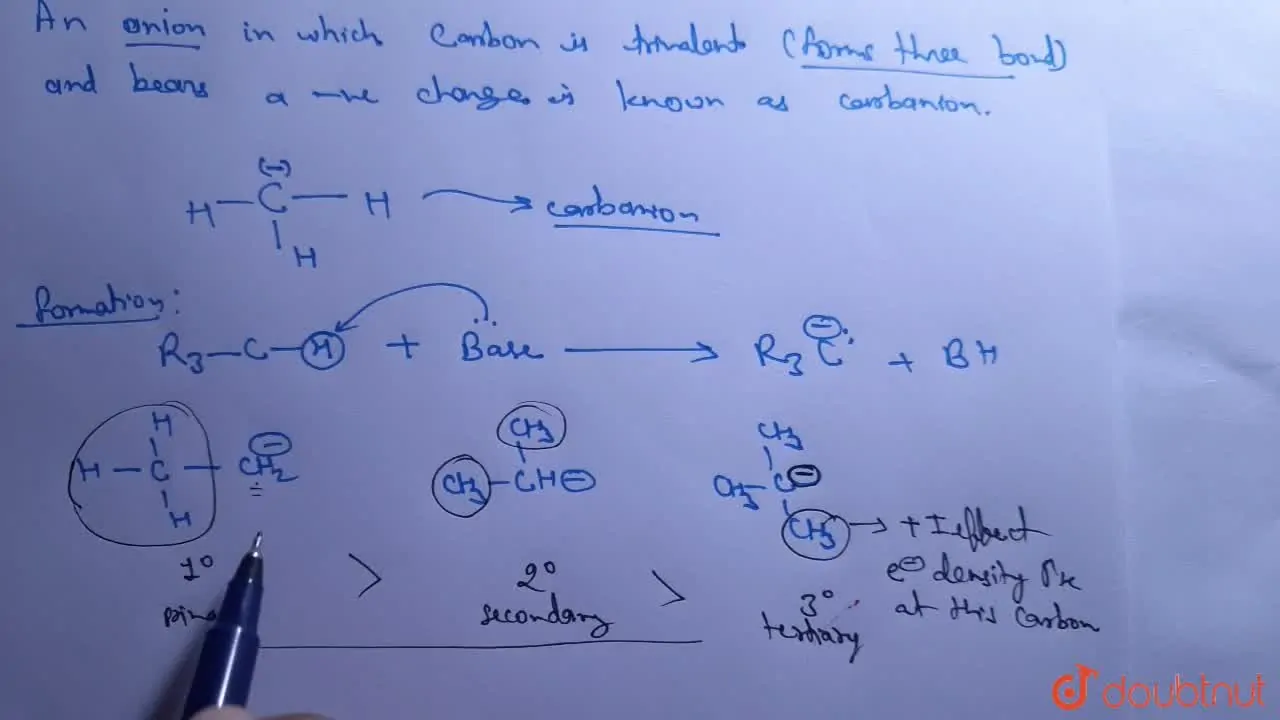 An anion in which Carbon is trivalent (forms three bond)
and bears a -ve charge is known as carbanion.
(-)
H-C-H → carbanion
H
formation:
R3-C-H + Base → R3C:⊖ + BH
H
H-C-CH2⊖
H
CH3
CH3-CH⊖
CH3
CH3-C⊖
CH3 → + I effect
e⊖ density
at this carbon
1° > 2° > 3°
secondary
tertiary
doubtnut